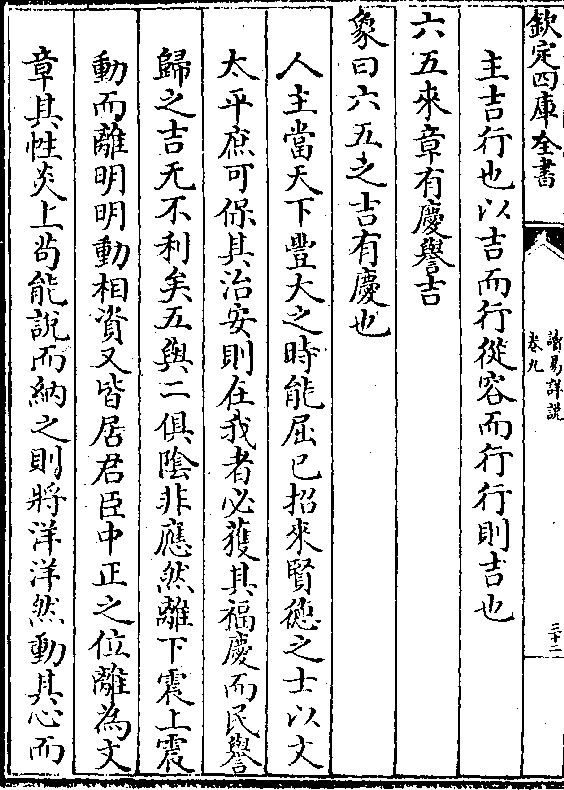 欽定四庫全書
讀易詳說
卷九
三十二
主吉行也以吉而行從容而行行則吉也
六五來章有慶譽吉
象曰六五之吉有慶也
人主當天下豐大之時能屈已招來賢德之士以文
太平庶可保其治安則在我者必獲其福慶而民譽
歸之吉无不利矣五與二俱隂非應然離下震上震
動而離明明動相資又皆居君臣中正之位離為文
章其性炎上茍能說而納之則將洋洋然動其心而